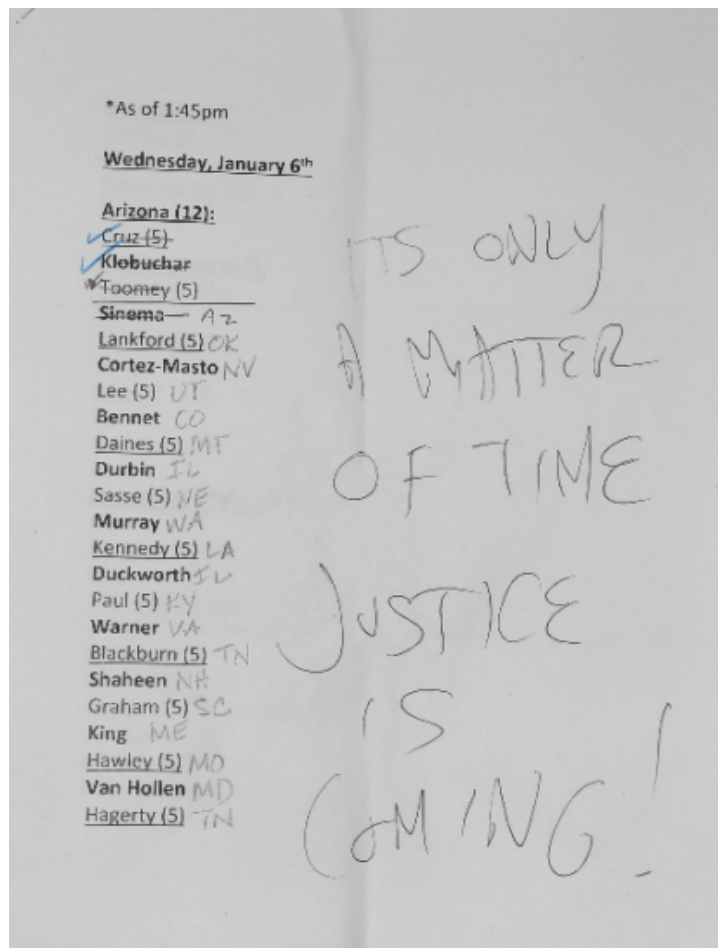 *As of 1:45pm
Wednesday, January 6th
Arizona (12):
Cruz (5)
Klobuchar
Toomey (5)
Sinema AZ
Lankford (5) OK
Cortez-Masto NV
Lee (5) UT
Bennet CO
Daines (5) MT
Durbin IL
Sasse (5) NE
Murray WA
Kennedy (5) LA
Duckworth IL
Paul (5) KY
Warner VA
Blackburn (5) TN
Shaheen NH
Graham (5) SC
King ME
Hawley (5) MO
Van Hollen MD
Hagerty (5) TN
ITS ONLY
A MATTER
OF TIME
JUSTICE
IS
COMING!